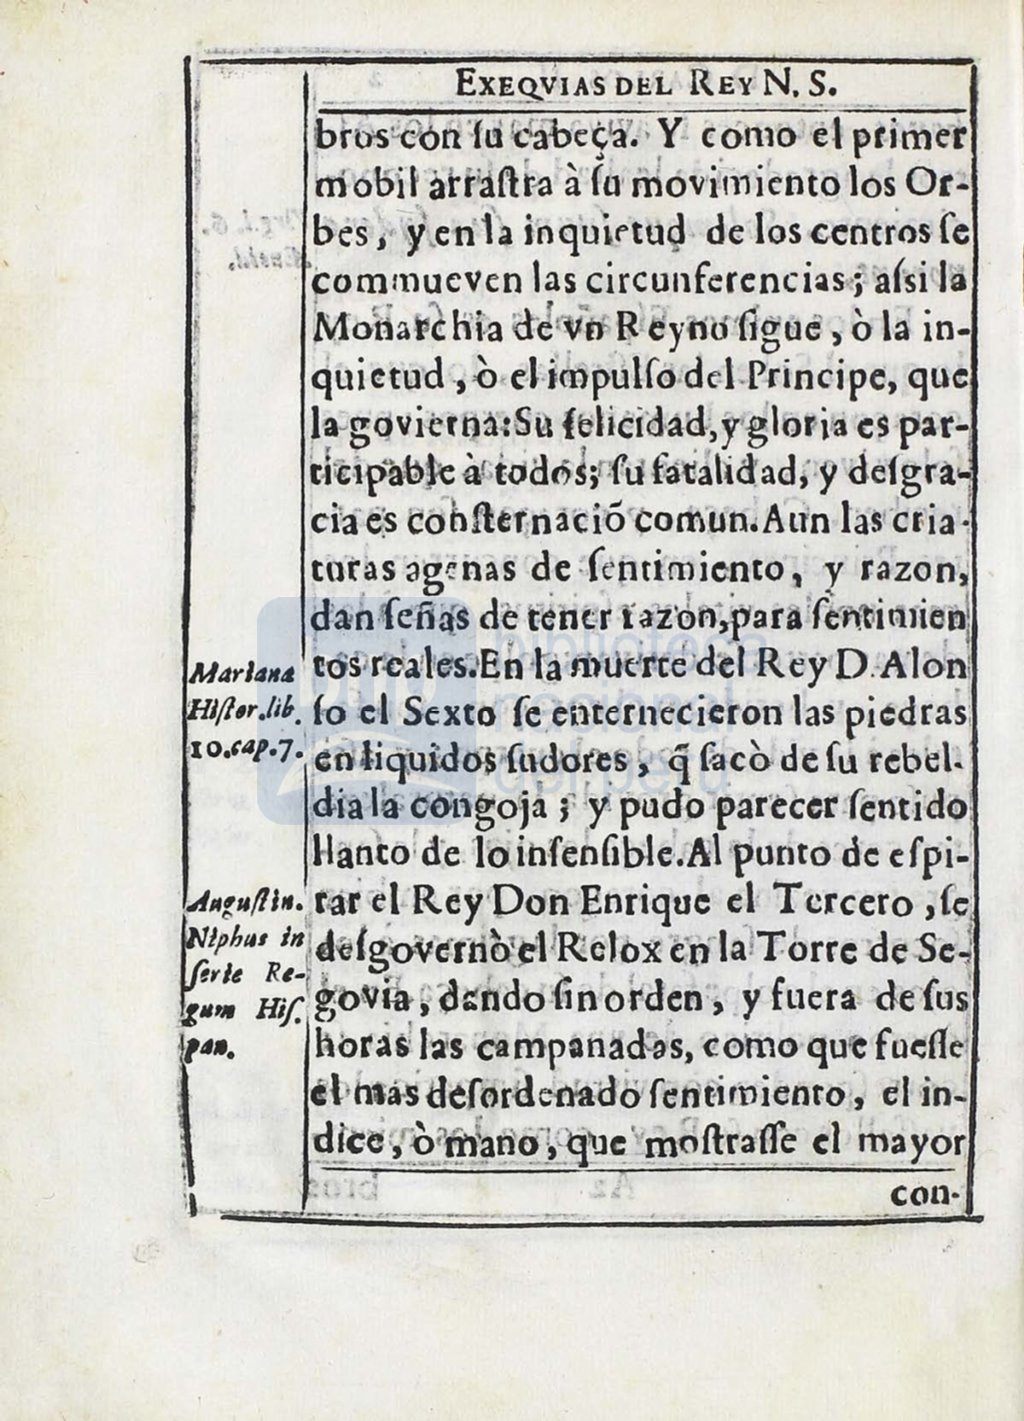 EXEQVIAS DEL REY N. S.
bros con ſu cabeça. Y como el primer
mobil arraſtra à ſu movimiento los Or-
bes, y en la inquietud de los centros ſe
commueven las circunferencias; aſsi la
Monarchia de vn Reyno ſigue, ò la in-
quietud, ò el impulſo del Principe, que
la govierna: Su felicidad, y gloria es par-
ticipable à todos; ſu fatalidad, y deſgra-
cia es conſternaciõ comun. Aun las cria-
turas agenas de ſentimiento, y razon,
dan ſeñas de tener razon, para ſentimien
tos reales. En la muerte del Rey D. Alon
ſo el Sexto ſe enternecieron las piedras
en liquidos ſudores, q̃ ſacò de ſu rebel-
dia la congoja; y pudo parecer ſentido
llanto de lo inſenſible. Al punto de eſpi-
rar el Rey Don Enrique el Tercero, ſe
deſgovernò el Relox en la Torre de Se-
govia, dando ſin orden, y fuera de ſus
horas las campanadas, como que fueſſe
el mas deſordenado ſentimiento, el in-
dice, ò mano, que moſtraſſe el mayor
con-
Mariana
Hiſtor. lib.
10. cap. 7.
Auguſtin.
Niphus in
ſerie Re-
gum Hiſ.
pan.
biblioteca
nacional
del perú